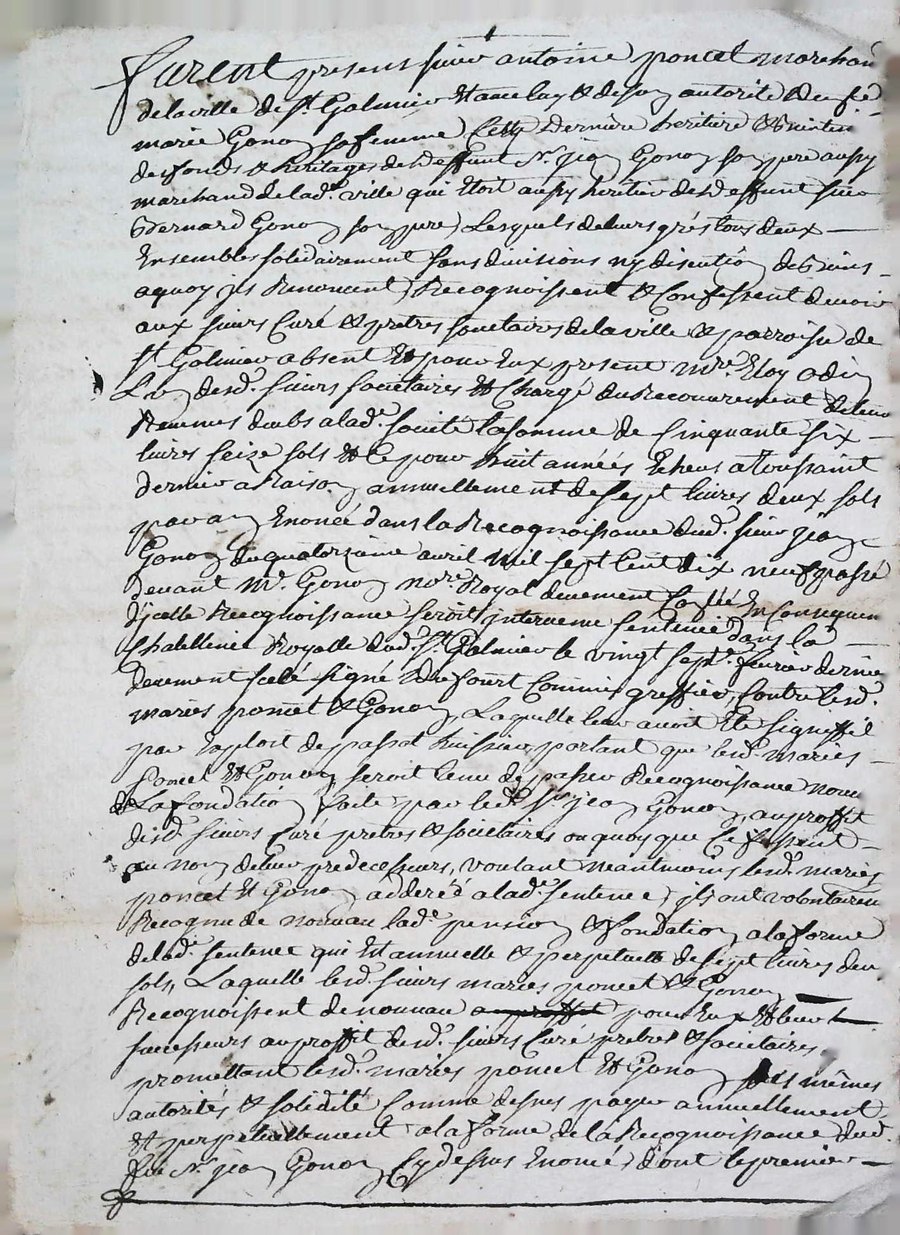 furent present sieur antoine poncet marchan
de la ville de st Galmier et avec luy et de son autorité
marie Gonon sa femme Cette derniere heritiere
des fonds et heritages de deffunt sr jean Gonon son pere aussy
marchand de lade ville qui etoit aussy heritier de deffunt sieur
Bernard Gonon son pere Lesquels de leurs grés tous deux —
Ensembles solidairement sans divisions ny discution de Biens —
aquoy ils Renoncent, Recognoissent et Confessent devoir
aux sieurs Curé et pretres societaires de la ville et parroisse de
st Galmier absent Et pour Eux present mre Eloy odin
L'un desd. sieurs societaires et Chargé du Recouvrement de leur
Revenues deubs a lade societé la somme de Cinquante six —
livres seize sols et ce pour huit années Echeus a toussaint
dernier à Raison annuellement de sept livres deux sols
par an Enoncée dans la Recognoissance dud. sieur jean
Gonon du quatorzieme avril mil sept Cent dix neuf passé
devant Me Gonon nore Royal deuement En Consequen
d'jcelle Recognoissance seroit intervenue sentence dans la
Chatellenie Royalle dud. st Galmier le vingt sept fevrier dernier
deuement scelé signé Commis greffier, Contre lesd.
mariés poncet et Gonon, Laquelle leur avoit Eté signiffié
par Exploit de passot huissier portant que lesd. mariés —
poncet Et Gonon seroit tenu de passer Recognoissance nouve
de La fondation faite par led. sr jean Gonon, au proffit
desd. sieurs Curé pretres et societaires ou quoy que Ce fussent —
au nom de leur predecesseurs, voulant neantmoins lesd. mariés
poncet Et Gonon adderé a lade sentence, ils ont volontairem
Recognu de nouveau lade pension et fondation a la forme
de lade sentence qui Est annuelle et perpetuelle de sept livres deu
sols, Laquelle lesd. sieurs mariés poncet et Gonon —
Recognoissent de nouveau au proffit pour Eux Et leur
successeurs au proffit desd. sieurs Curé pretres et societaires,
promettant lesd. mariés poncet Et Gonon mêmes
autorités et solidité Comme dessus payer annuellement
et perpetuellement a la forme de la Recognoissance dud.
feu sr jean Gonon Cy dessus Enoncé, dont le premier —